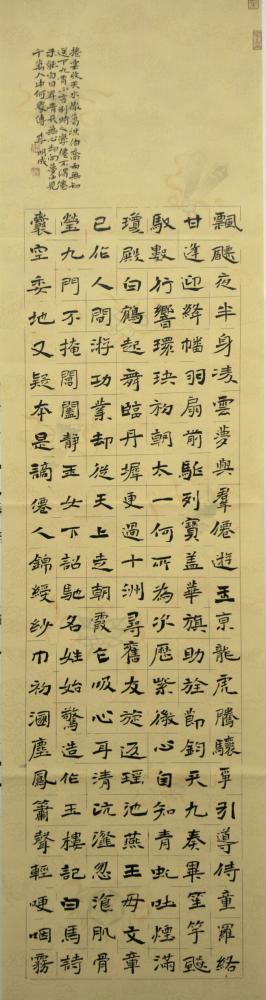 飄飄夜半身淩雲夢與羣僊遊玉京龍虎騰驤爭引導侍童羅絡
甘逢迎絳幡羽扇前駈列寶蓋華旗助旌節鈞天九奏畢笙竽颷
馭數行響環玦初朝太一何所為次歷紫微心自知青虬吐煙滿
瓊殿白鶴起舞臨丹墀更過十洲尋舊友旋返瑤池燕王母文章
已作人間游功業却從天上走朝霞乍吸心耳清沆瀣忽飡肌骨
瑩九門不掩閶闔靜玉女下詔馳名姓始驚造化玉樓記白馬詩
囊空委地又疑本是謫僊人錦綬紗巾初溷塵鳳簫聲輕哽咽霧
捲雲收天水澈葛洪
送下九霄
千萬人中何處傳